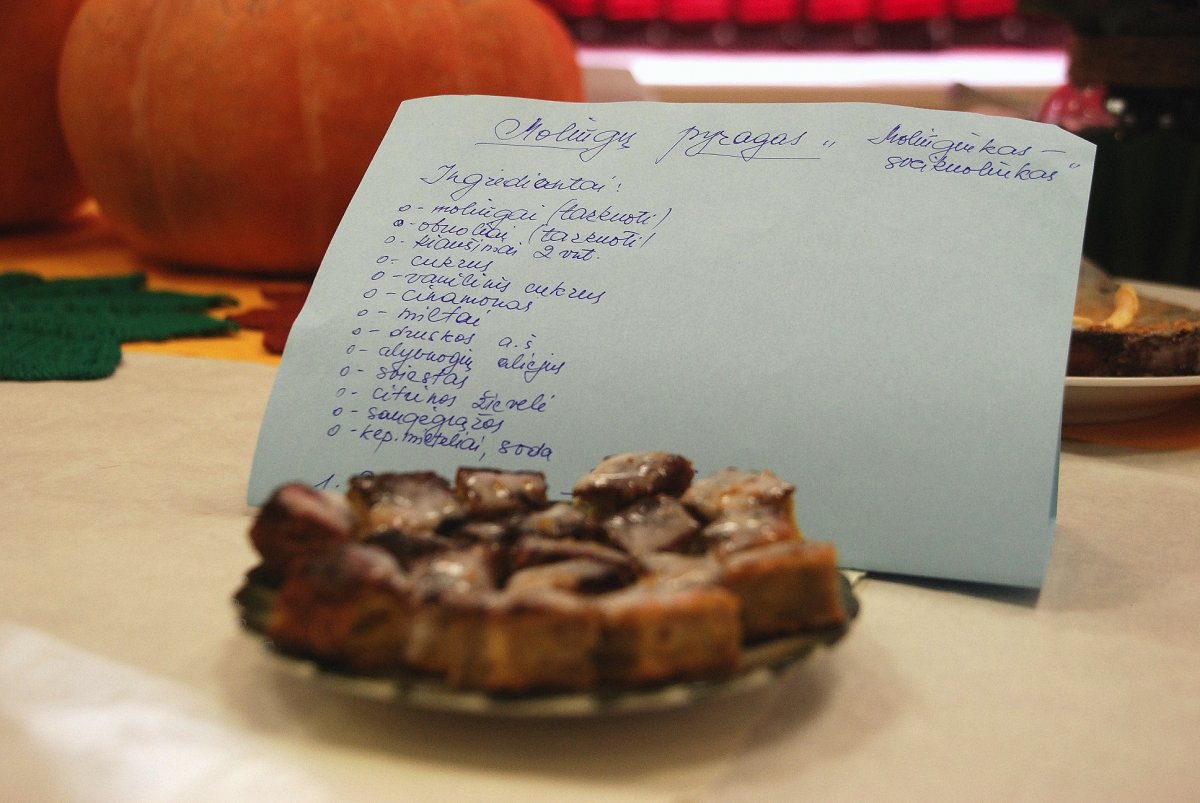 Moliūgų pyragas „ Moliūginkas –
sveikuolinkas"
Ingredientai:
o - moliūgai (tarkuoti)
o - obuoliai (tarkuoti)
o - kiaušiniai 2 vnt.
o - cukrus
o - vanilinis cukrus
o - cinamonas
o - miltai
o - druskos a.š
o - alyvuogių aliejus
o - sviestas
o - citrinos žievelė
o - saulėgrąžos
o - kep. milteliai, soda
1.